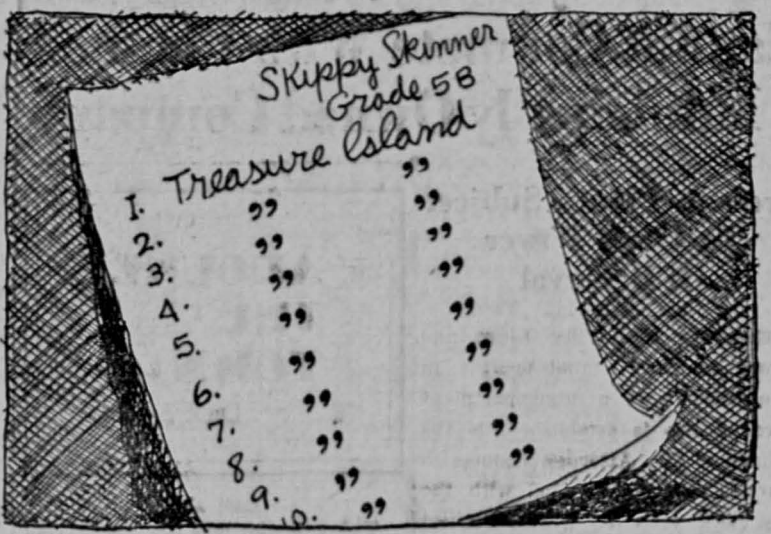 Skippy Skinner
Grade 5B
1. Treasure Island
2. " "
3. " "
4. " "
5. " "
6. " "
7. " "
8. " "
9. " "
10. " "